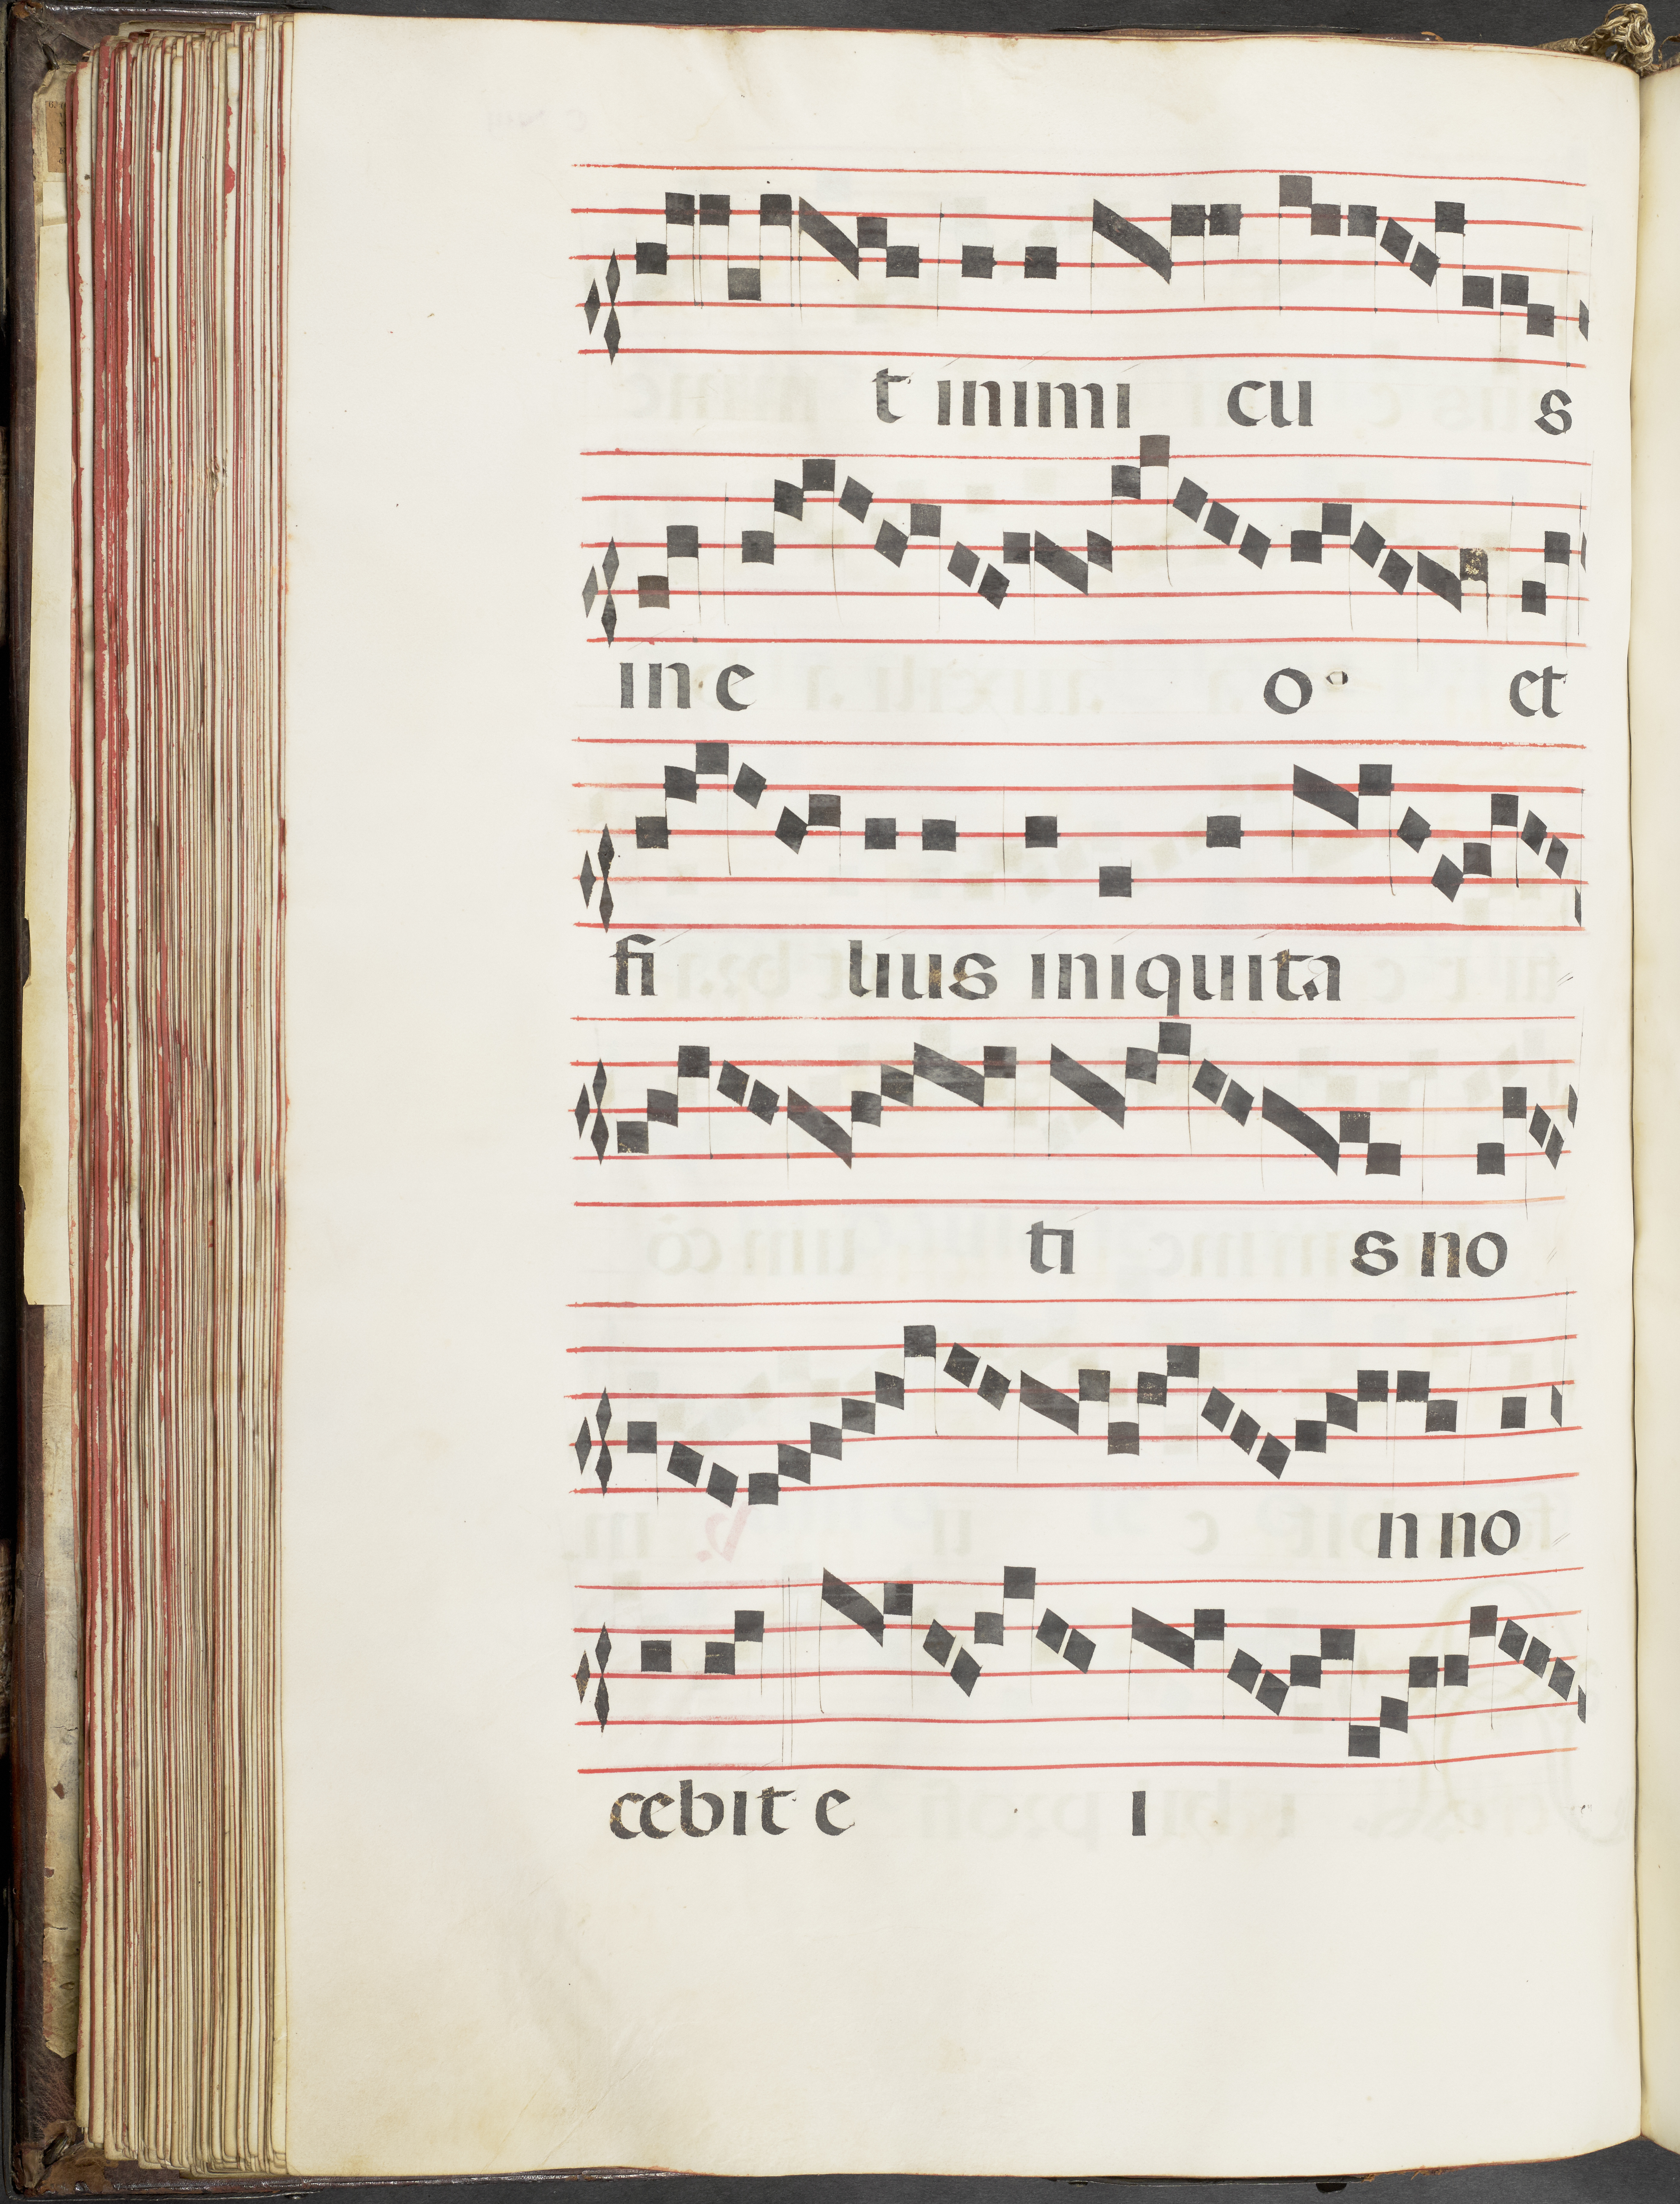 t inimi cu s
in e o et
fi lius iniquita
ti s no
n no
cebit e i